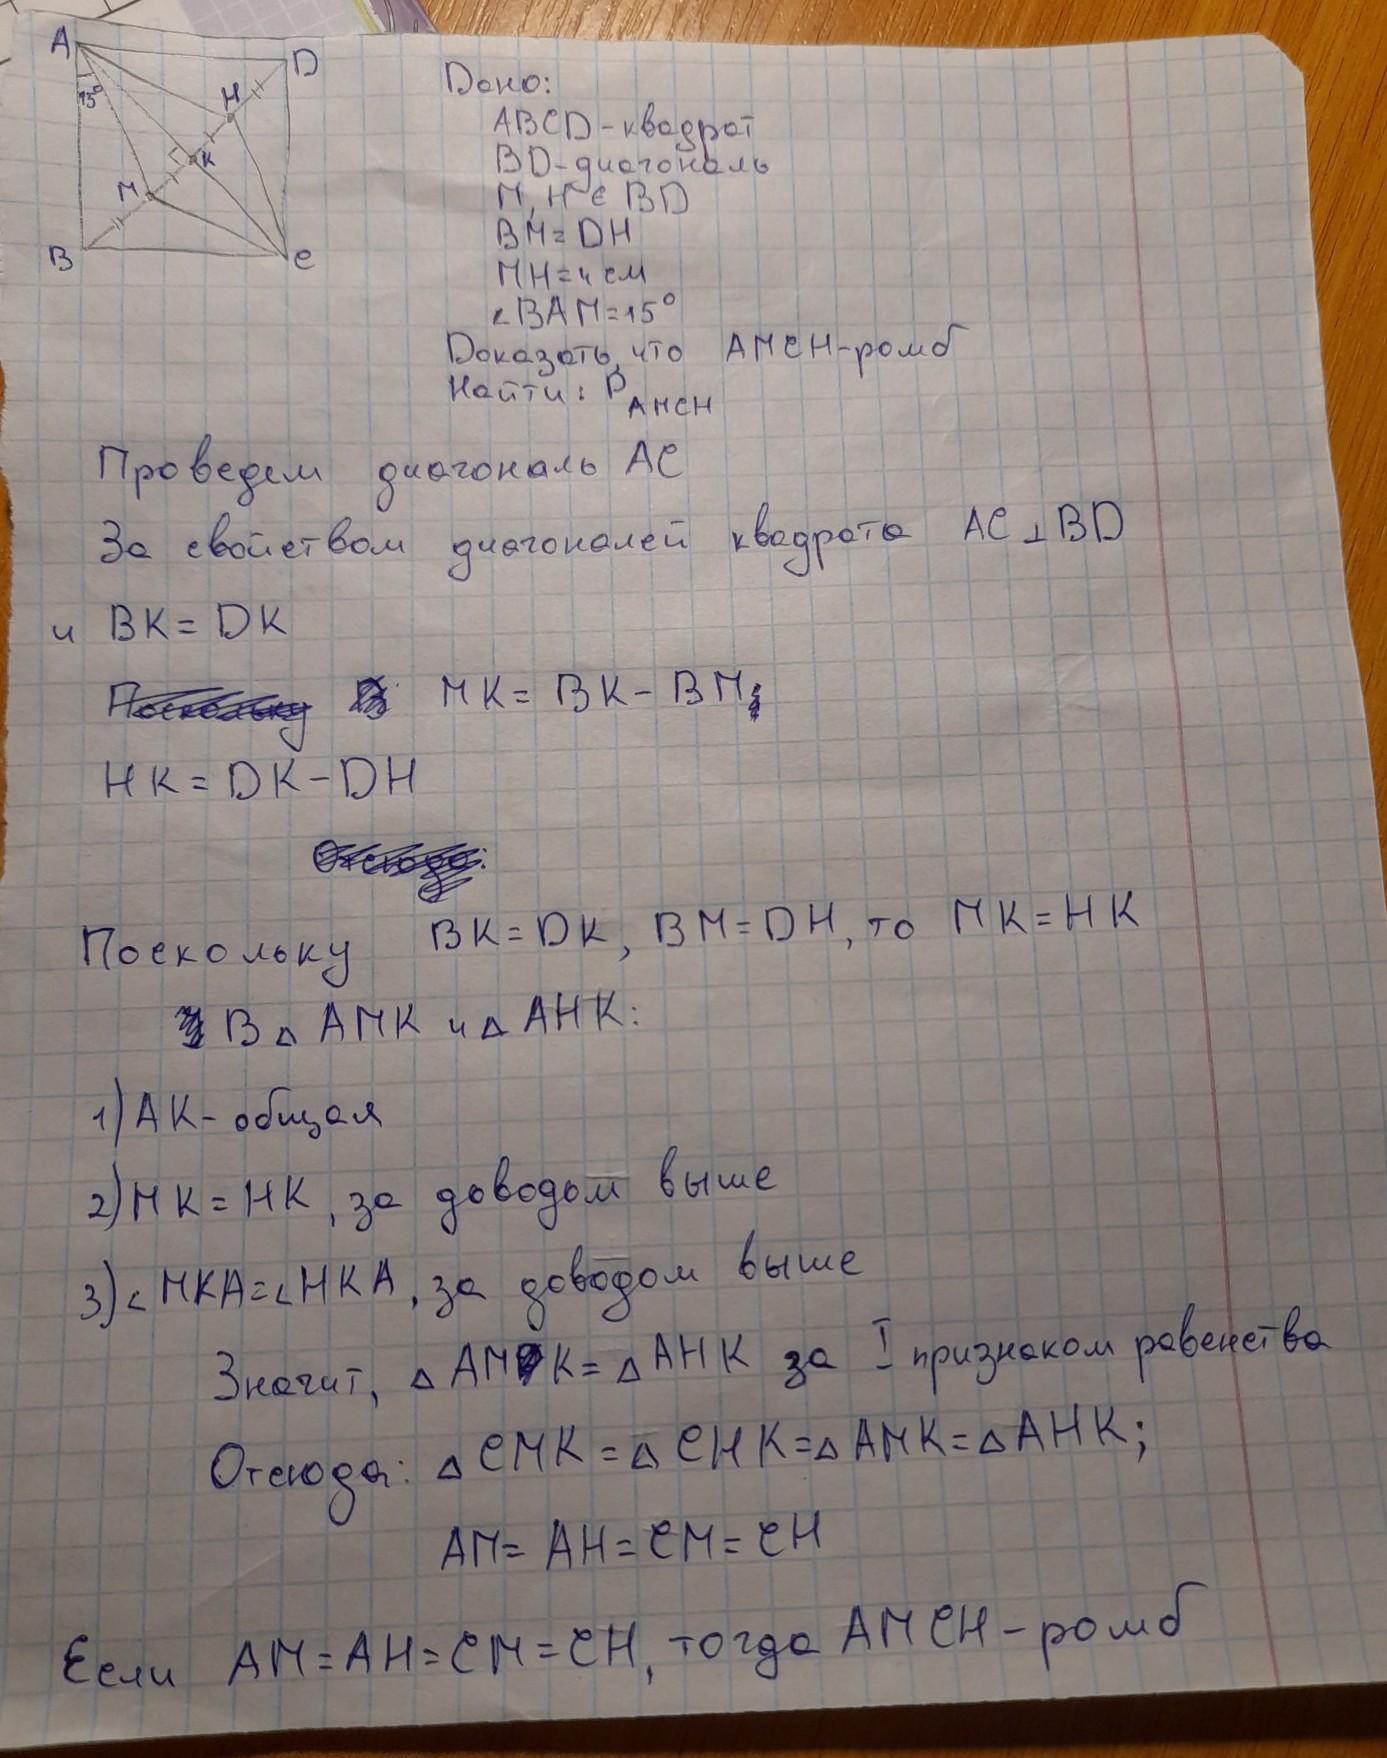 A
D
15°
H
K
M
B
C
Дано:
ABCD - квадрат
BD - диагональ
M, H ∈ BD
BM = DH
MH = 4 см
∠BAM = 15°
Доказать, что AMCH - ромб
Найти: P AMCH
Проведем диагональ AC
За свойством диагоналей квадрата AC ⊥ BD
и BK = DK
MK = BK - BM;
HK = DK - DH
Поскольку BK = DK, BM = DH, то MK = HK
В △ AMK и △ AHK:
1) AK - общая
2) MK = HK, за доводом выше
3) ∠MKA = ∠HKA, за доводом выше
Значит, △ AMK = △ AHK за I признаком равенства
Отсюда: △ CMK = △ CHK = △ AMK = △ AHK;
AM = AH = CM = CH
Если AM = AH = CM = CH, тогда AMCH - ромб